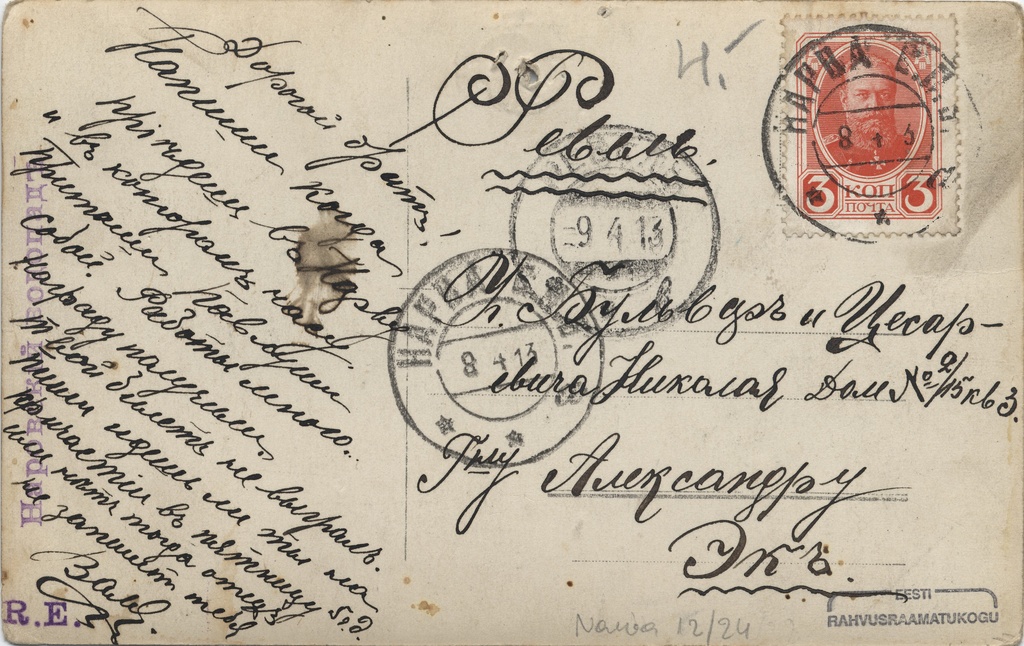 Дорогой братъ!
Напиши когда
прiѣдешь въ
и въ которомъ часу.
Притащи
собой. Работы много.
награду получили.
твой билетъ не выигралъ.
Пиши идешь ли ты на
причастiи въ пятницу
или нѣтъ тогда отецъ
не запишетъ тебя
Нарвскiй водопадъ
R. E.
Ревель.
Уг. Бульваръ и Цесар-
евича Николая Домъ № 2/15 кв 3.
Г-ну Александру
Экъ.
НАРВА
8 4 13
НАРВА
8 4 13
9 4 13
3 КОП 3
ПОЧТА
Narva 12/24
EESTI
RAHVUSRAAMATUKOGU